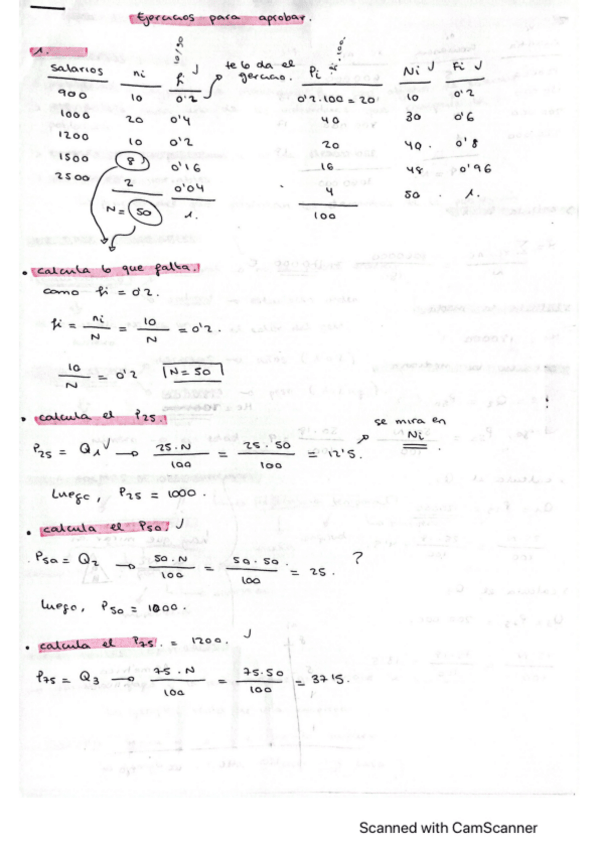 Ejercicios para aprobar.
1.
Salarios ni fi te lo da el ejercicio. Pi fi·100. Ni Fi
10/50
900 10 0'2 0'2·100 = 20 10 0'2
1000 20 0'4 40 30 0'6
1200 10 0'2 20 40. 0'8
1500 8 0'16 16 48 0'96
2500 2 0'04 4 50 1.
N = 50 1. 100
• calcula lo que falta.
como fi = 0'2.
fi = ni/N = 10/N = 0'2
10/N = 0'2 N = 50
• calcula el P25.
se mira en Ni
P25 = Q1 → 25·N/100 = 25·50/100 = 12'5.
Luego, P25 = 1000.
• calcula el P50.
P50 = Q2 → 50·N/100 = 50·50/100 = 25. ?
Luego, P50 = 1000.
• calcula el P75. = 1200.
P75 = Q3 → 75·N/100 = 75·50/100 = 37'5.
Scanned with CamScanner